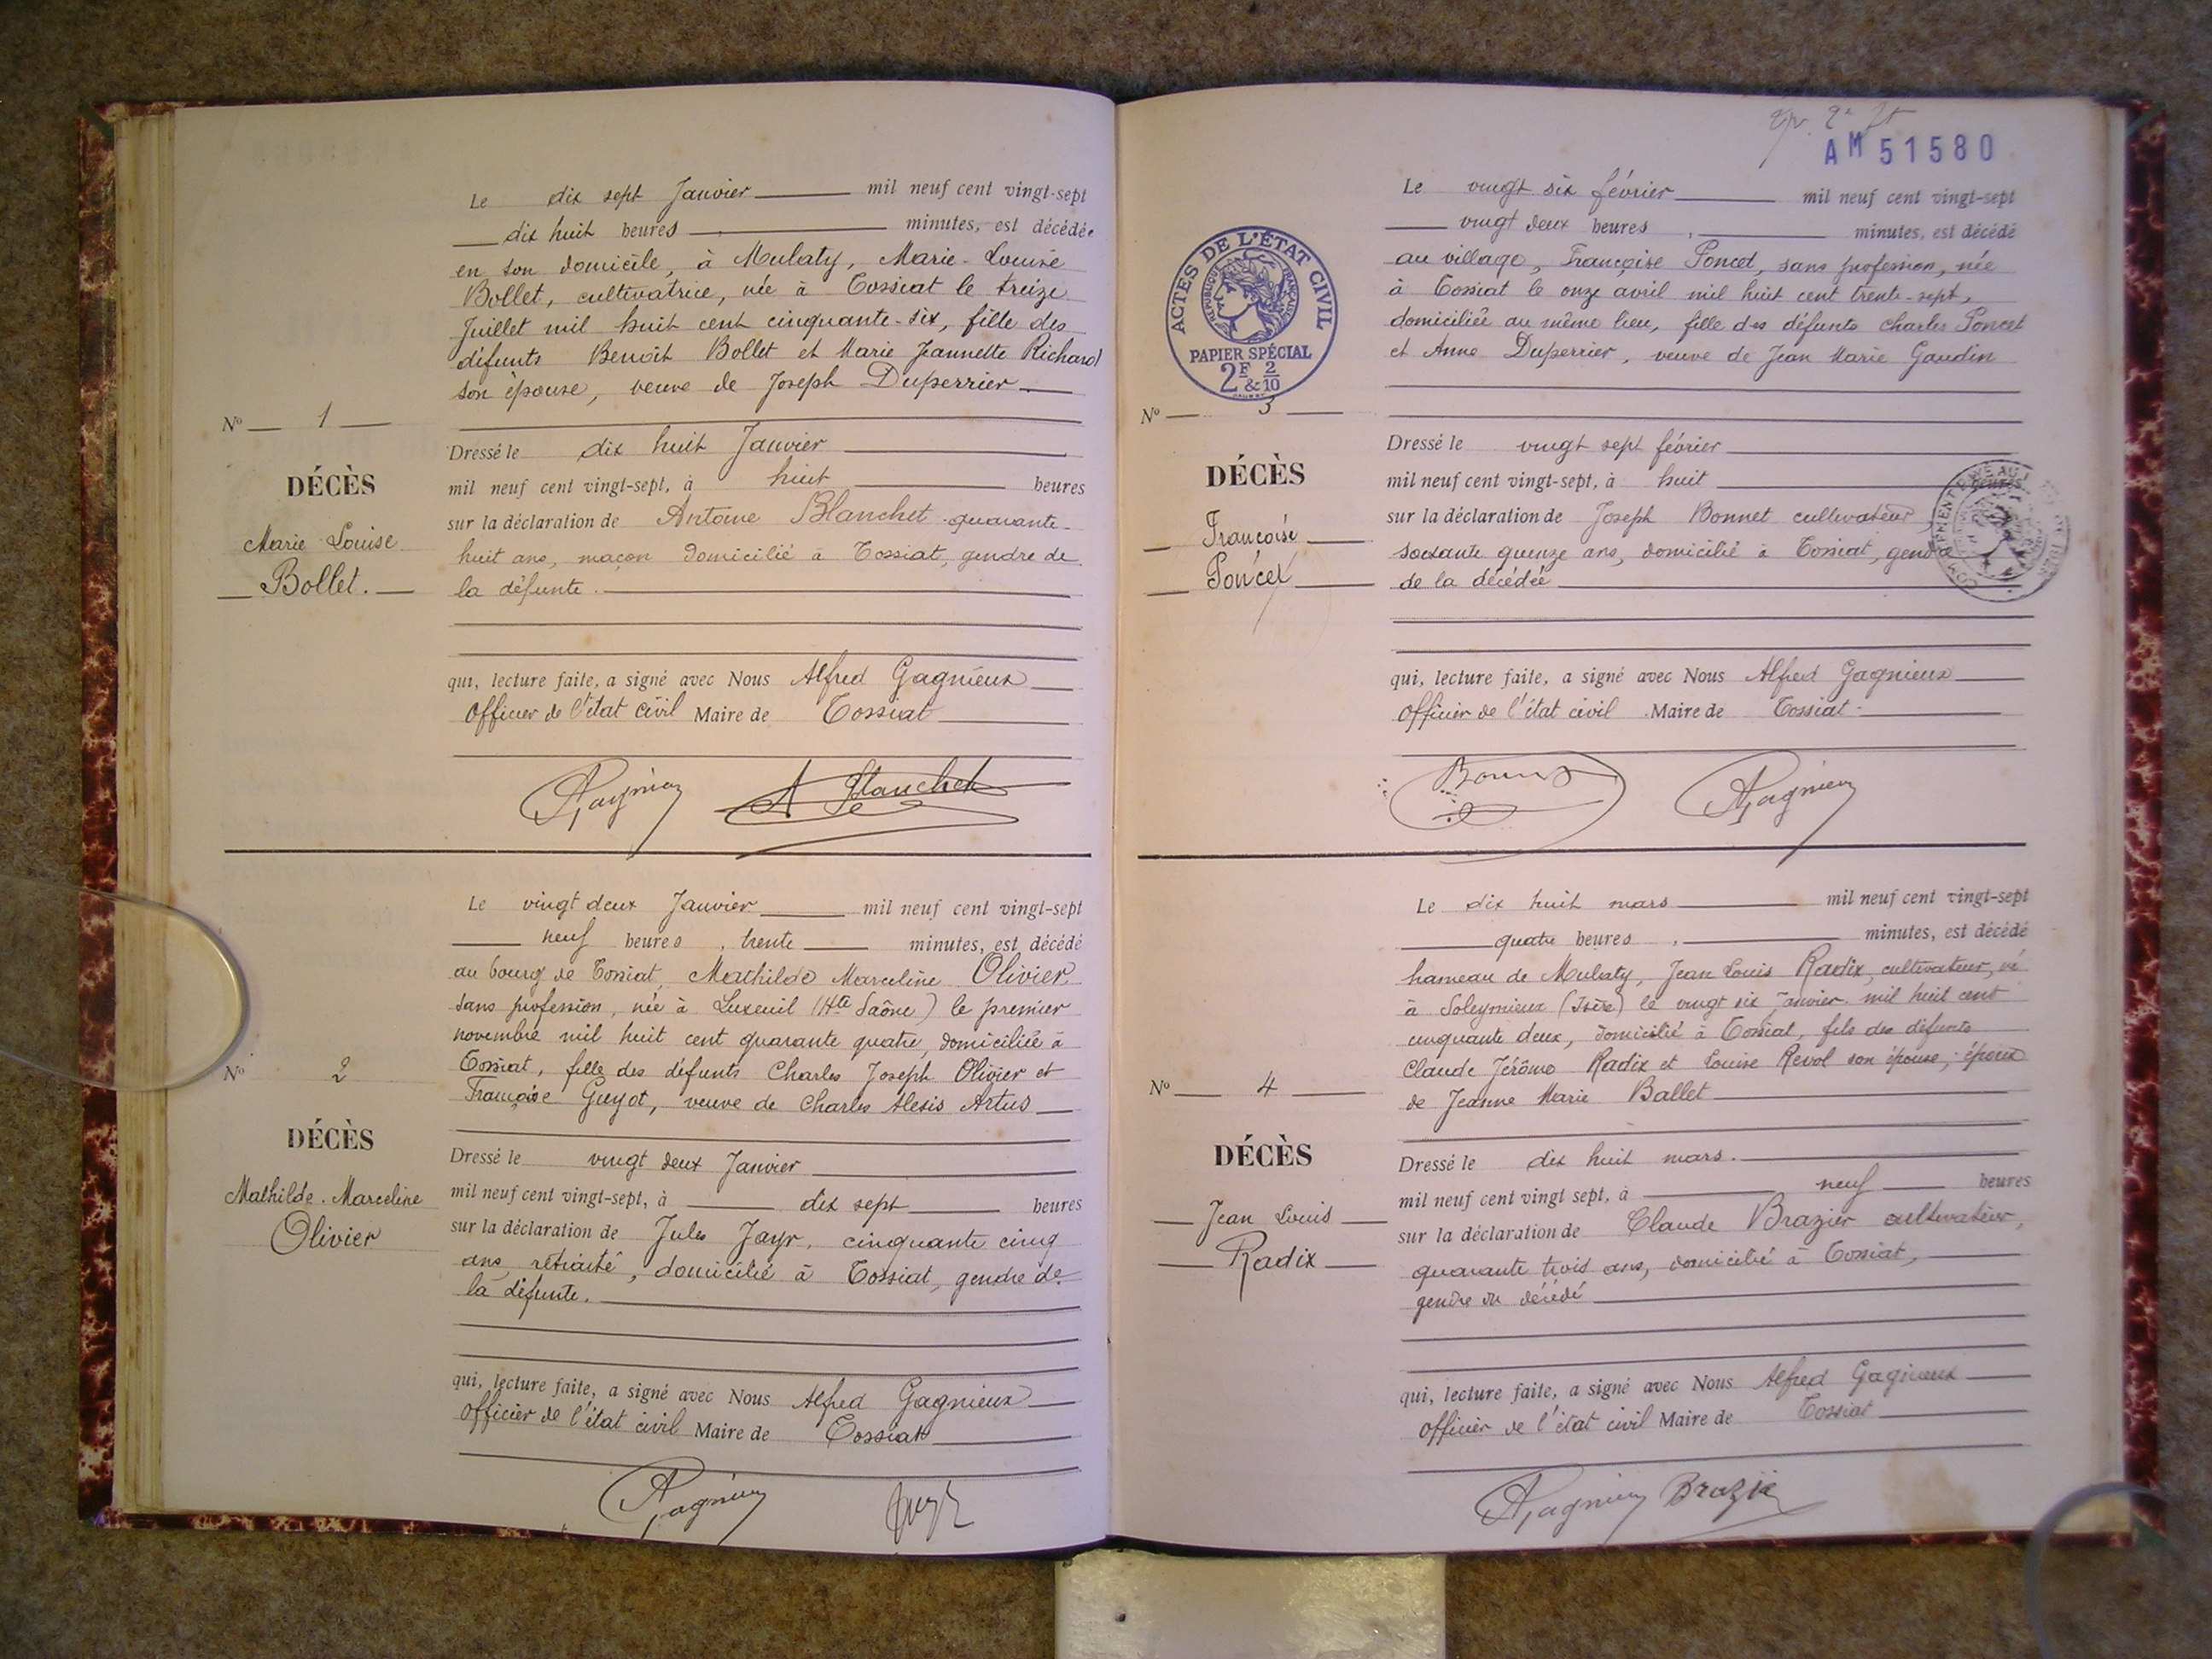 Le dix sept Janvier mil neuf cent vingt-sept
dix huit heures minutes, est décédée
en son domicile, à Mulaty, Marie-Louise
Bollet, cultivatrice, née à Tossiat le treize
Juillet mil huit cent cinquante-six, fille des
défunts Benoit Bollet et Marie Jeannette Richard
son épouse, veuve de Joseph Duperrier
Nº 1
DÉCÈS
Marie Louise
Bollet.
Dressé le dix huit Janvier
mil neuf cent vingt-sept, à huit heures
sur la déclaration de Antoine Blanchet quarante-
huit ans, maçon domicilié à Tossiat, gendre de
la défunte.
qui, lecture faite, a signé avec Nous Alfred Gagnieux
Officier de l'état civil Maire de Tossiat
AGagnieux A Blanchet
Le vingt deux Janvier mil neuf cent vingt-sept
neuf heures, trente minutes, est décédé
au bourg de Tossiat, Mathilde Marceline Olivier
sans profession, née à Luxeuil (Hte Saône) le premier
novembre mil huit cent quarante quatre, domiciliée à
Tossiat, fille des défunts Charles Joseph Olivier et
Françoise Guyot, veuve de Charles Alexis Artus
Nº 2
DÉCÈS
Mathilde. Marceline
Olivier
Dressé le vingt deux Janvier
mil neuf cent vingt-sept, à dix sept heures
sur la déclaration de Jules Jayr, cinquante cinq
ans, retraité, domicilié à Tossiat, gendre de
la défunte.
qui, lecture faite, a signé avec Nous Alfred Gagnieux
Officier de l'état civil Maire de Tossiat
AGagnieux
AM 51580
Le vingt six février mil neuf cent vingt-sept
vingt deux heures, minutes, est décédé
au village, Françoise Poncet, sans profession, née
à Tossiat le onze avril mil huit cent trente-sept,
domiciliée au même lieu, fille des défunts Charles Poncet
et Anne Duperrier, veuve de Jean Marie Gaudin
ACTES DE L'ÉTAT CIVIL
RÉPUBLIQUE FRANÇAISE
PAPIER SPÉCIAL
2F & 2/10
Nº 3
DÉCÈS
Françoise
Poncet
Dressé le vingt sept février
mil neuf cent vingt-sept, à huit heures
sur la déclaration de Joseph Bonnet cultivateur
soixante quinze ans, domicilié à Tossiat, gendre
de la décédée
qui, lecture faite, a signé avec Nous Alfred Gagnieux
Officier de l'état civil Maire de Tossiat
Bonnet AGagnieux
Le dix huit mars mil neuf cent vingt-sept
quatre heures, minutes, est décédé
hameau de Mulaty, Jean Louis Radix, cultivateur, né
à Soleymieux (Isère) le vingt six Janvier mil huit cent
cinquante deux, domicilié à Tossiat, fils des défunts
Claude Jérôme Radix et Louise Revol son épouse, époux
de Jeanne Marie Ballet
Nº 4
DÉCÈS
Jean Louis
Radix
Dressé le dix huit mars.
mil neuf cent vingt sept, à neuf heures
sur la déclaration de Claude Brazier cultivateur,
quarante trois ans, domicilié à Tossiat,
gendre du décédé
qui, lecture faite, a signé avec Nous Alfred Gagnieux
Officier de l'état civil Maire de Tossiat
AGagnieux Brazier